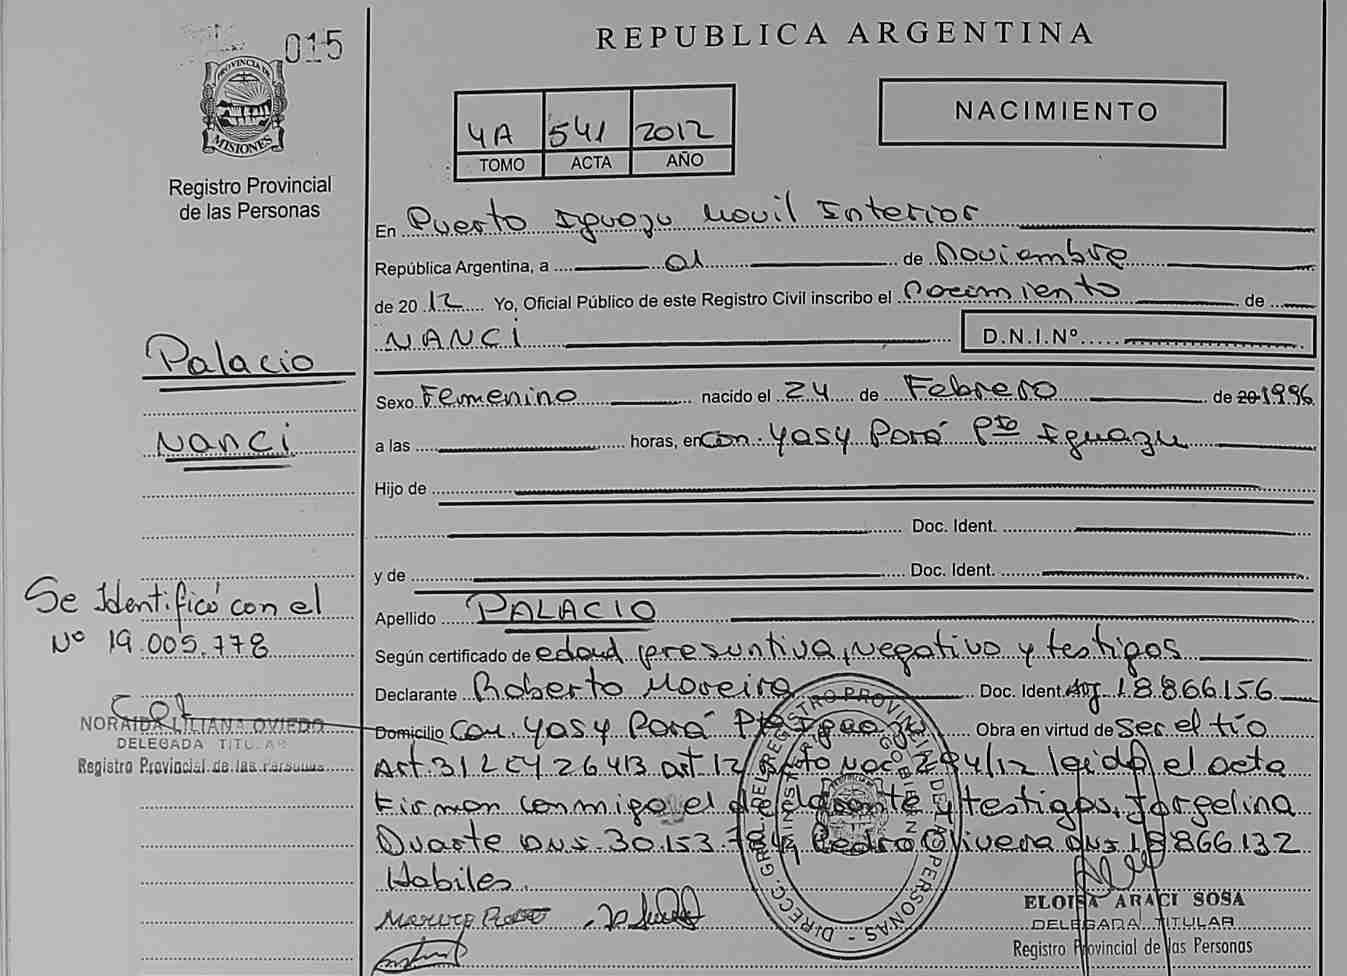 015
PROVINCIA DE
MISIONES
Registro Provincial
de las Personas
REPUBLICA ARGENTINA
4A 541 2012
TOMO ACTA AÑO
NACIMIENTO
En Puerto Iguazu Movil Interior
República Argentina, a 01 de Noviembre
de 20 12 Yo, Oficial Público de este Registro Civil inscribo el Nacimiento de
NANCI D.N.I.Nº
Sexo Femenino nacido el 24 de Febrero de 20 1996
a las horas, en Com. Yasy Porá Pto Iguazu
Hijo de
Doc. Ident.
y de Doc. Ident.
Apellido PALACIO
Según certificado de edad presuntiva, negativo y testigos
Declarante Roberto Moreira Doc. Ident. Arg 18.866.156
Domicilio Com. Yasy Porá Pto Iguazu Obra en virtud de Ser el tío
Art. 31 LEY 26413 art 12 294/12 leida el acta
Firman conmigo el declarante y testigos, Jorgelina
Duarte DNI 30.153. Pedro Olivera DNI 18866.132
Habiles.
Palacio
Nanci
Se Identificó con el
Nº 19.005.778
NORAIDA LILIANA OVIEDO
DELEGADA TITULAR
Registro Provincial de las Personas
DIRECC. GRAL. DEL REGISTRO PROVINCIAL DE LAS PERSONAS
ELOISA ARACI SOSA
DELEGADA TITULAR
Registro Provincial de las Personas